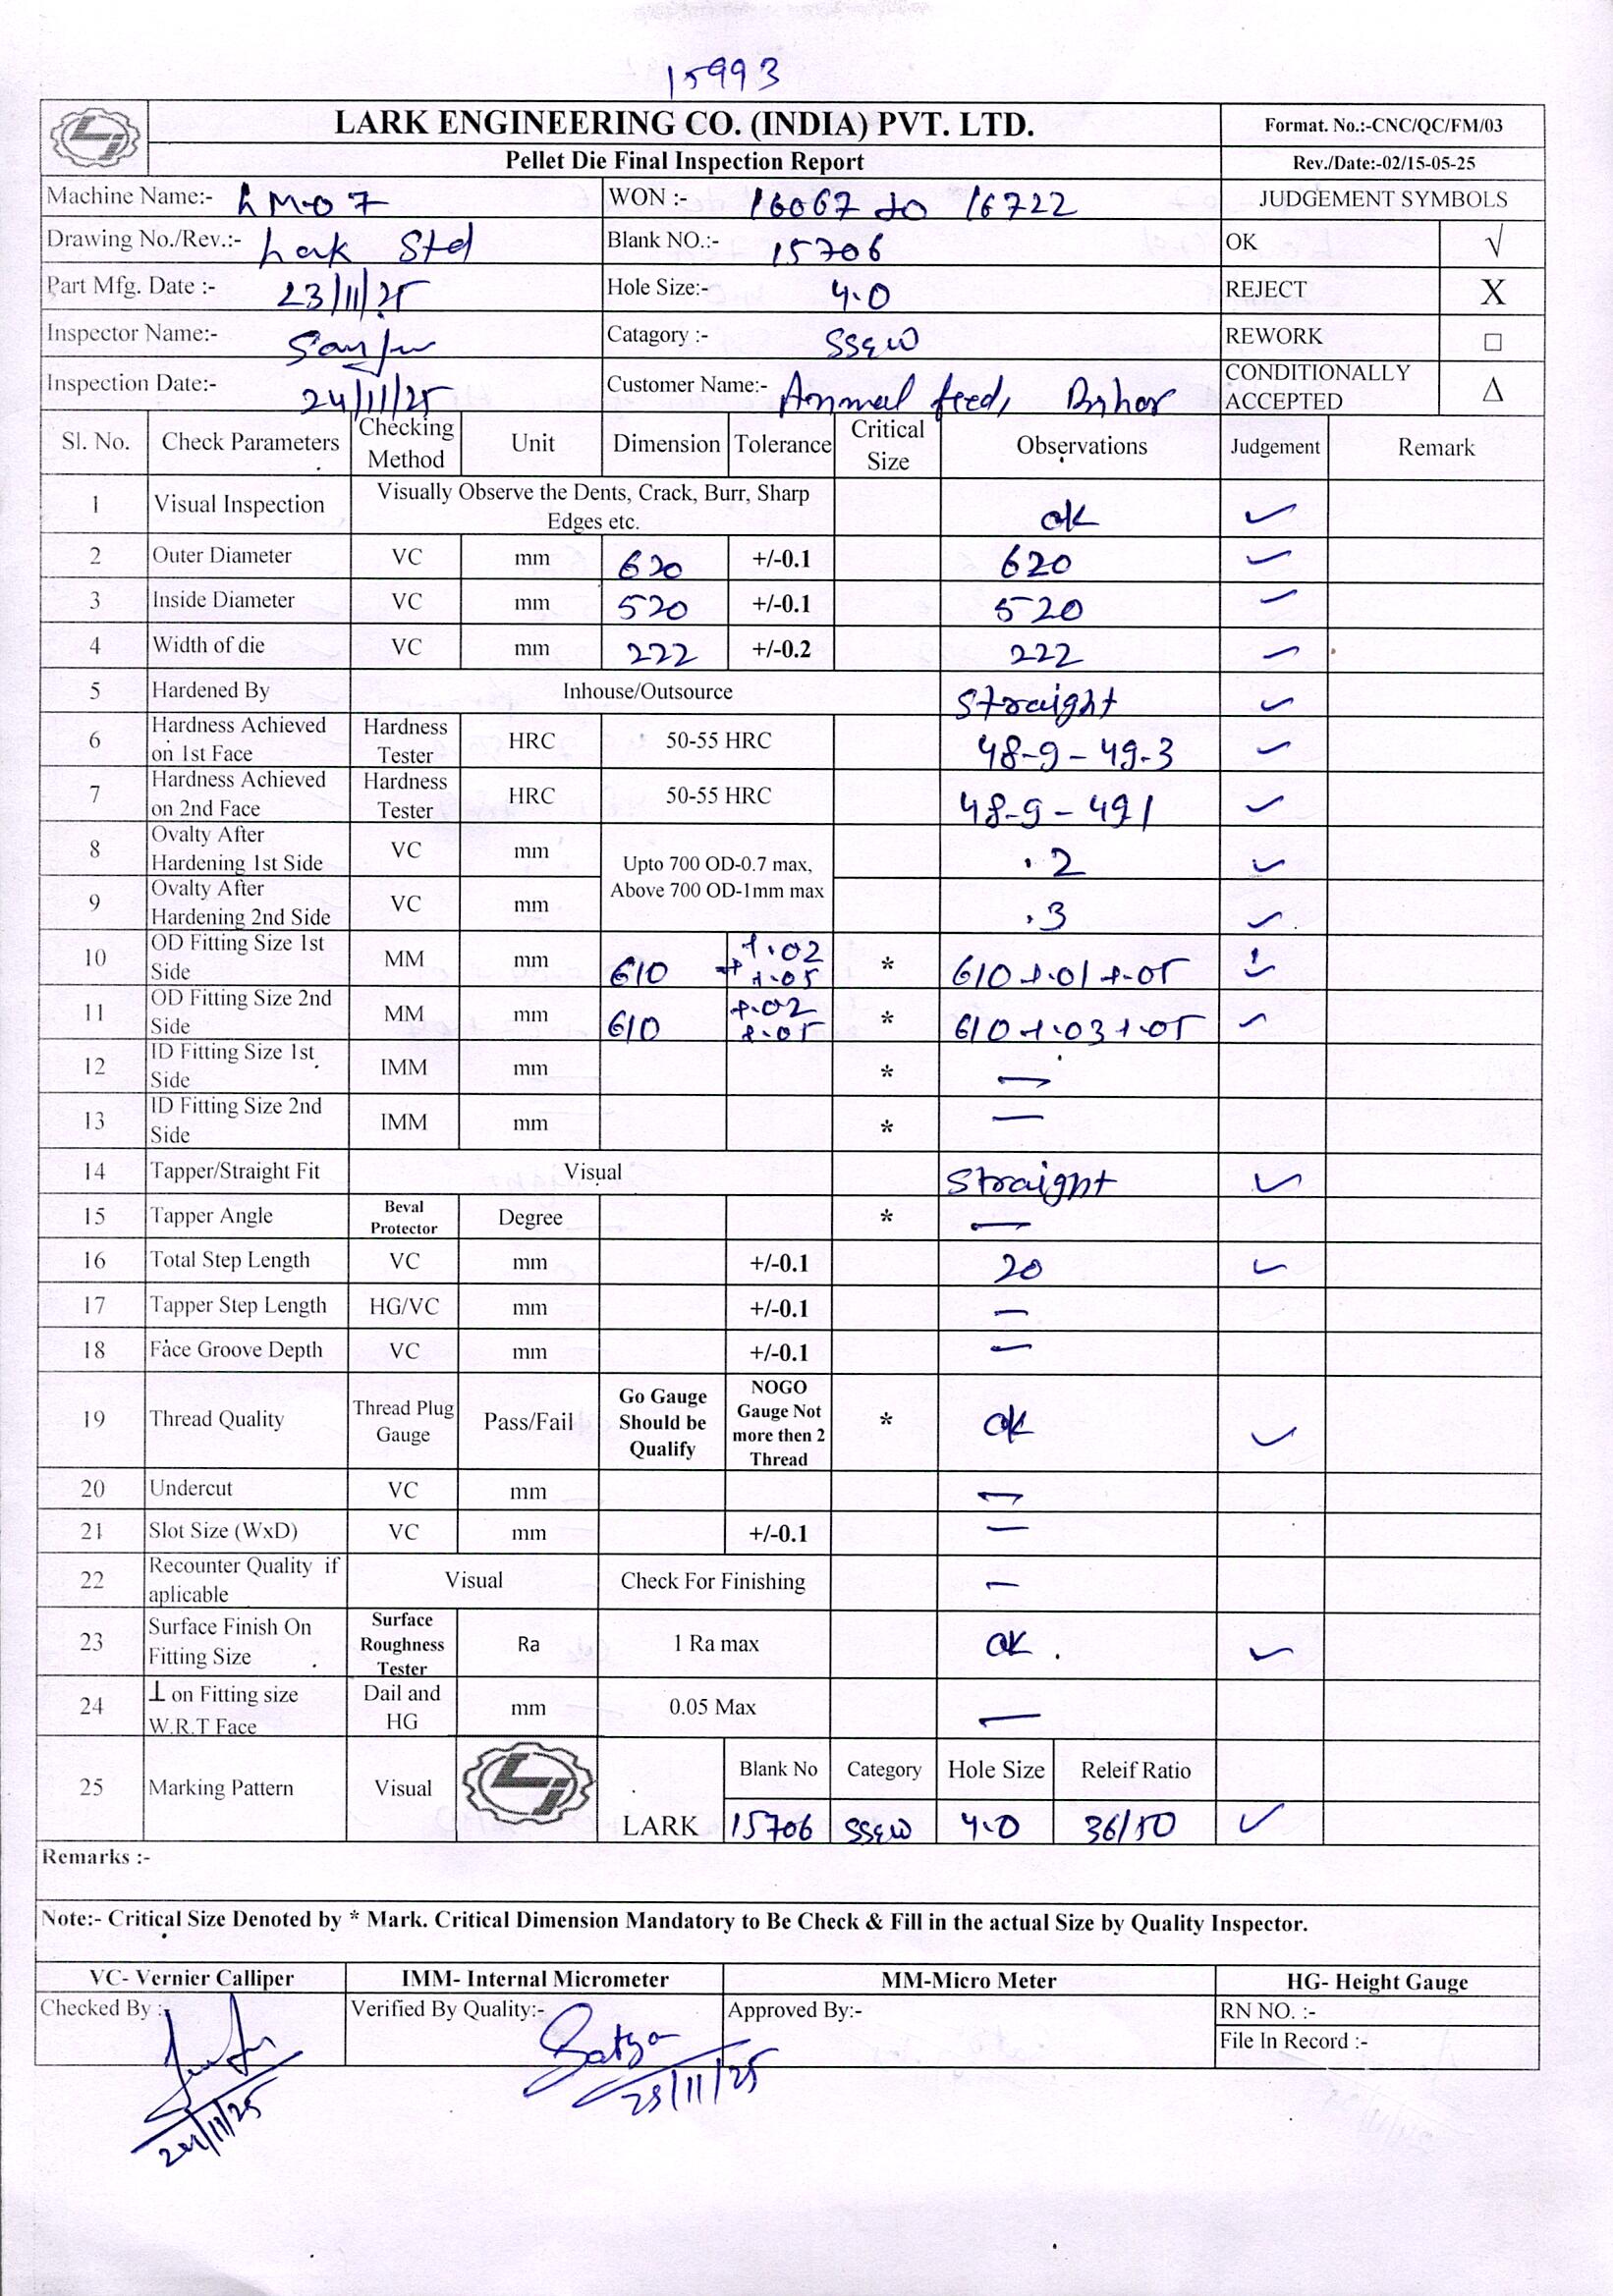 15993
LARK ENGINEERING CO. (INDIA) PVT. LTD.
Format. No.:-CNC/QC/FM/03
Pellet Die Final Inspection Report
Rev./Date:-02/15-05-25
Machine Name:- LM-07 WON :- 16067 to 16722 JUDGEMENT SYMBOLS
Drawing No./Rev.:- Lark Std Blank NO.:- 15706 OK √
Part Mfg. Date :- 23/11/25 Hole Size:- 4.0 REJECT X
Inspector Name:- Sanju Catagory :- SS&W REWORK □
Inspection Date:- 24/11/25 Customer Name:- Anmmal feed, CONDITIONALLY ACCEPTED Δ
Sl. No. Check Parameters Checking Method Unit Dimension Tolerance Critical Size Observations Judgement Remark
1 Visual Inspection Visually Observe the Dents, Crack, Burr, Sharp Edges etc. ok ✓
2 Outer Diameter VC mm 620 +/-0.1 620 ✓
3 Inside Diameter VC mm 520 +/-0.1 520 ✓
4 Width of die VC mm 222 +/-0.2 222 ✓
5 Hardened By Inhouse/Outsource Straight ✓
6 Hardness Achieved on 1st Face Hardness Tester HRC 50-55 HRC 48-9 - 49-3 ✓
7 Hardness Achieved on 2nd Face Hardness Tester HRC 50-55 HRC 48-9 - 491 ✓
8 Ovalty After Hardening 1st Side VC mm Upto 700 OD-0.7 max, Above 700 OD-1mm max .2 ✓
9 Ovalty After Hardening 2nd Side VC mm .3 ✓
10 OD Fitting Size 1st Side MM mm 610 +.02 +.05 * 610 +.01 +.05 ✓
11 OD Fitting Size 2nd Side MM mm 610 +.02 +.05 * 610 +.03 +.05 ✓
12 ID Fitting Size 1st Side IMM mm * —
13 ID Fitting Size 2nd Side IMM mm * —
14 Tapper/Straight Fit Visual Straight ✓
15 Tapper Angle Beval Protector Degree * —
16 Total Step Length VC mm +/-0.1 20 ✓
17 Tapper Step Length HG/VC mm +/-0.1 —
18 Face Groove Depth VC mm +/-0.1 —
19 Thread Quality Thread Plug Gauge Pass/Fail Go Gauge Should be Qualify NOGO Gauge Not more then 2 Thread * ok ✓
20 Undercut VC mm —
21 Slot Size (WxD) VC mm +/-0.1 —
22 Recounter Quality if aplicable Visual Check For Finishing —
23 Surface Finish On Fitting Size Surface Roughness Tester Ra 1 Ra max ok. ✓
24 ⊥ on Fitting size W.R.T Face Dail and HG mm 0.05 Max —
25 Marking Pattern Visual LARK Blank No Category Hole Size Releif Ratio
15706 SS&W 4.0 36/50 ✓
Remarks :-
Note:- Critical Size Denoted by * Mark. Critical Dimension Mandatory to Be Check & Fill in the actual Size by Quality Inspector.
VC- Vernier Calliper IMM- Internal Micrometer MM-Micro Meter HG- Height Gauge
Checked By :- Verified By Quality:- Satya Approved By:- RN NO. :-
File In Record :-
24/11/25